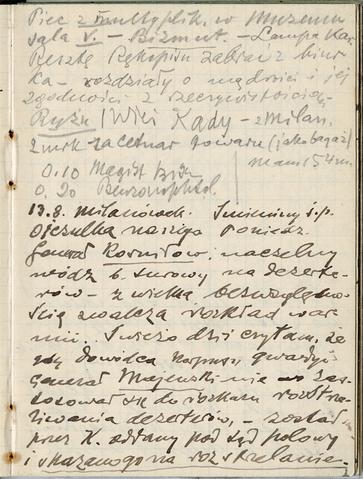 Piec z multyplik. w Muzeum
sala V. - Bizmut. - Lampa
Resztę Rękopisu zabrać z biur-
ka - rozdziały o mądrości i jej
zgodności z rzeczywistością.
Ryżu i Wiki Kady - z Milan.
2 mrk za cetnar towaru (jako bagaż)
mam 154 m.
0.10 Magist
0.20 Benzonaphtol.
13.8. Milanówek. Imieniny ś.p.
Ojczulka naszego
Generał Korniłow, naczelny
wódz b. surowy na dezerte-
rów - z wielką bezwzględno-
ścią zwalcza rozkład w ar-
mii. Świeżo dziś czytam, że
gdy dowódca korpusu gwardyi
generał Majewski nie za-
stosował się do rozkazu rozstrze-
liwania dezerterów, - został
przez K. oddany pod sąd polowy
i skazany na rozstrzelanie.